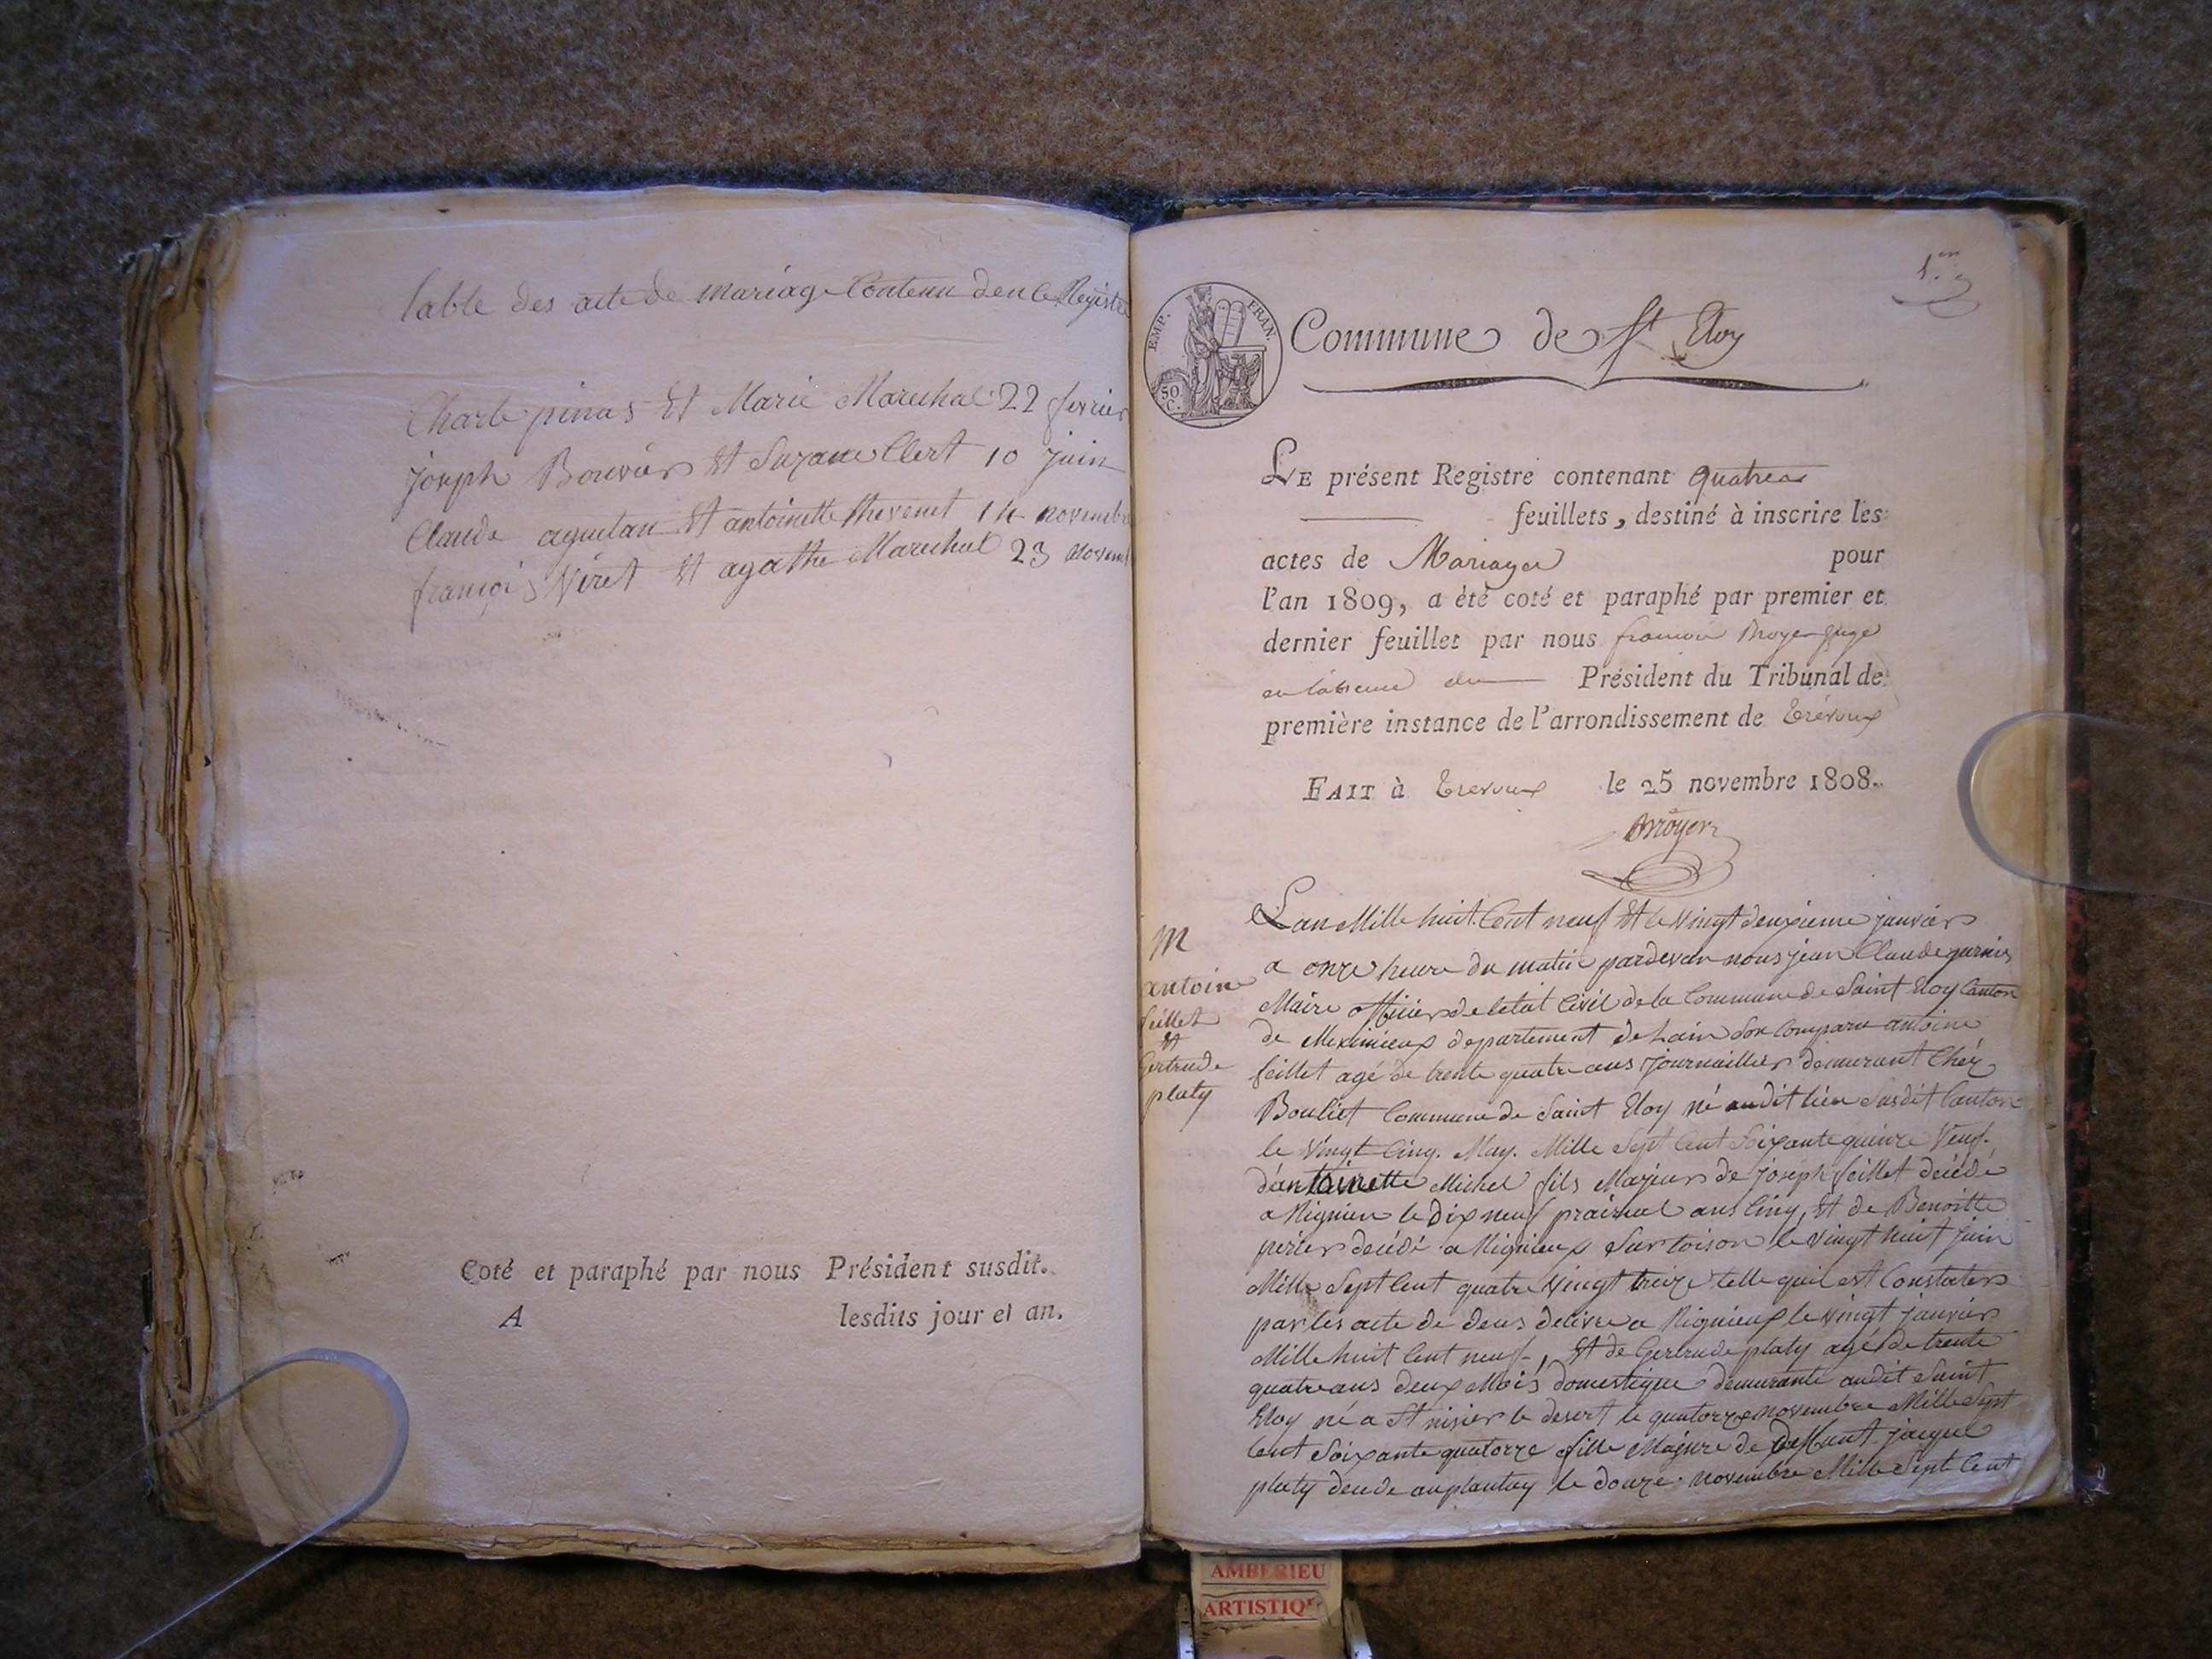 Table des acte de mariage Contenu den le Registre
Charle pinas Et Marie Marechal 22 fevrier
joseph Bouvier Et Suzane Clert 10 juin
Claude aguetan Et antoinette thevenet 14 novembre
françois Viret Et agathe Marechal 23 novem
Coté et paraphé par nous Président susdit.
A lesdits jour et an.
1.er
EMP. FRAN.
50 C.
Commune de St Eloy
LE présent Registre contenant quatre
feuillets, destiné à inscrire les
actes de Mariages pour
l'an 1809, a été coté et paraphé par premier et
dernier feuillet par nous francois Moyer juge
en labsence du Président du Tribunal de
première instance de l'arrondissement de Trévoux
FAIT à Trevoux le 25 novembre 1808.
M
antoine
feillet
Et
Gertrude
platy
Lan Mille huit Cent neuf Et le Vingt deuxieme janvier
a onze heure du matin pardevan nous jean Claude
Maire officier de letat Civil de la Commune de Saint Eloy Canton
de Meximieux departement de Lain Son Comparu antoine
feillet agé de trente quatre ans journaillier demurant Chéz
Bouliet Commune de Saint Eloy né audit lieu Susdit Canton
le Vingt Cinq. May. Mille Sept Cent Soixante quinze Veuf
dantoinette Michel fils Majeur de joseph feillet décédé
a Rignieu le Dix neuf prairial ans Cinq, Et de Benoitte
perier décédé a Rignieux Sur toison le Vingt huit juin
Mille Sept Cent quatre Vingt treize telle quil est Constater
par les acte de deces delivre a Rignieux le Vingt janvier
Mille huit Cent neuf, Et de Gertrude platy agé de trente
quatre ans deux Mois domestique demurante audit Saint
Eloy né a St nisier le desert le quatorze novembre Mille Sept
Cent Soixante quatorze fille Majure de Deffunt jacque
platy decede au plantay le douze novembre Mille Sept Cent
AMBERIEU
ARTISTIQ